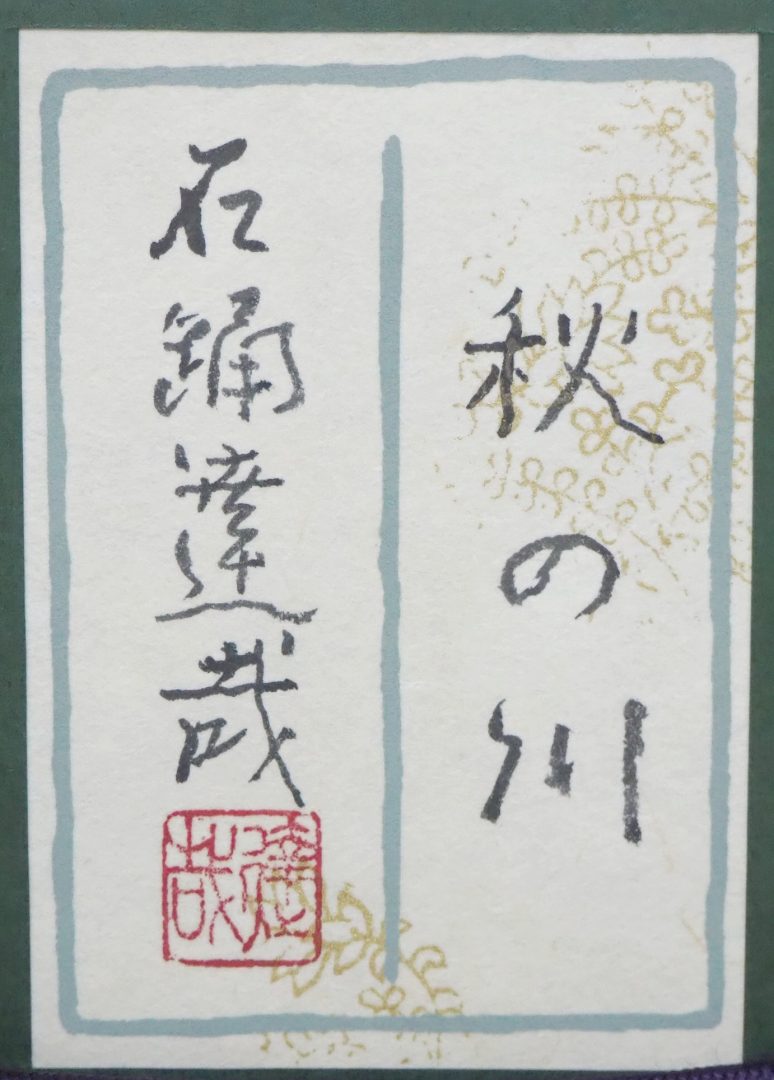 秋の川
石踊達哉
達哉